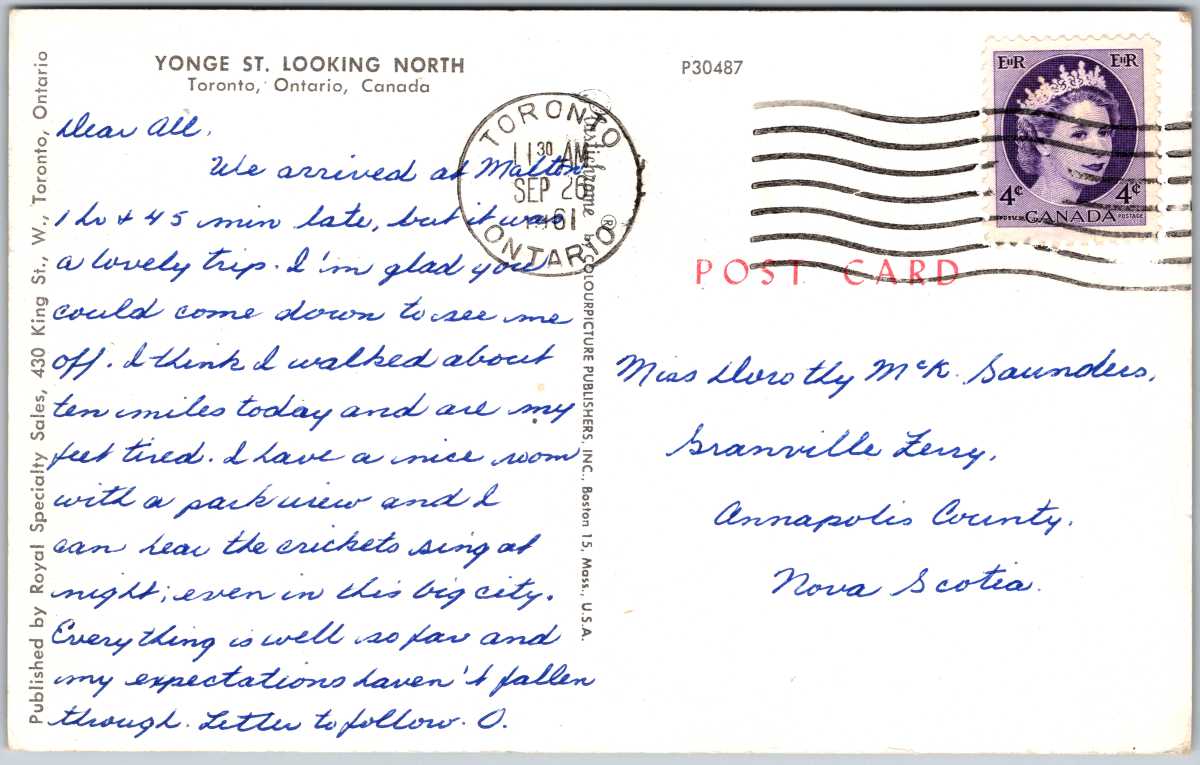 YONGE ST. LOOKING NORTH
Toronto, Ontario, Canada
P30487
Dear All,
We arrived at Malton
1 hr & 45 min late, but it was
a lovely trip. I'm glad you
could come down to see me
off. I think I walked about
ten miles today and are my
feet tired. I have a nice room
with a park view and I
can hear the crickets sing at
night; even in this big city.
Everything is well so far and
my expectations haven't fallen
through. Letter to follow. O.
Published by Royal Specialty Sales, 430 King St., W., Toronto, Ontario
Plastichrome ® by COLOURPICTURE PUBLISHERS, INC., Boston 15, Mass., U.S.A.
TORONTO
11 30 AM
SEP 26
1961
ONTARIO
EIIR EIIR
4¢ 4¢
CANADA
POSTES POSTAGE
POST CARD
Miss Dorothy McK. Saunders,
Granville Ferry,
Annapolis County,
Nova Scotia.